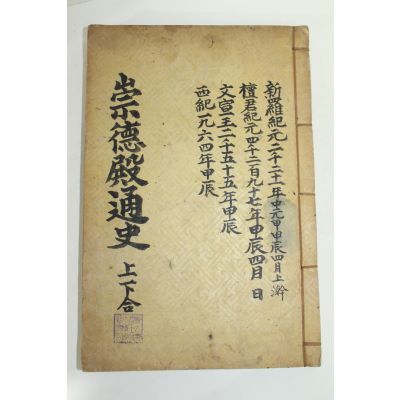 新羅紀元二千二十一年中元甲辰四月上澣
檀君紀元四千二百九十七年甲辰四月 日
文宣王二千五十五年甲辰
西紀一九六四年甲辰
崇德殿通史 上下合